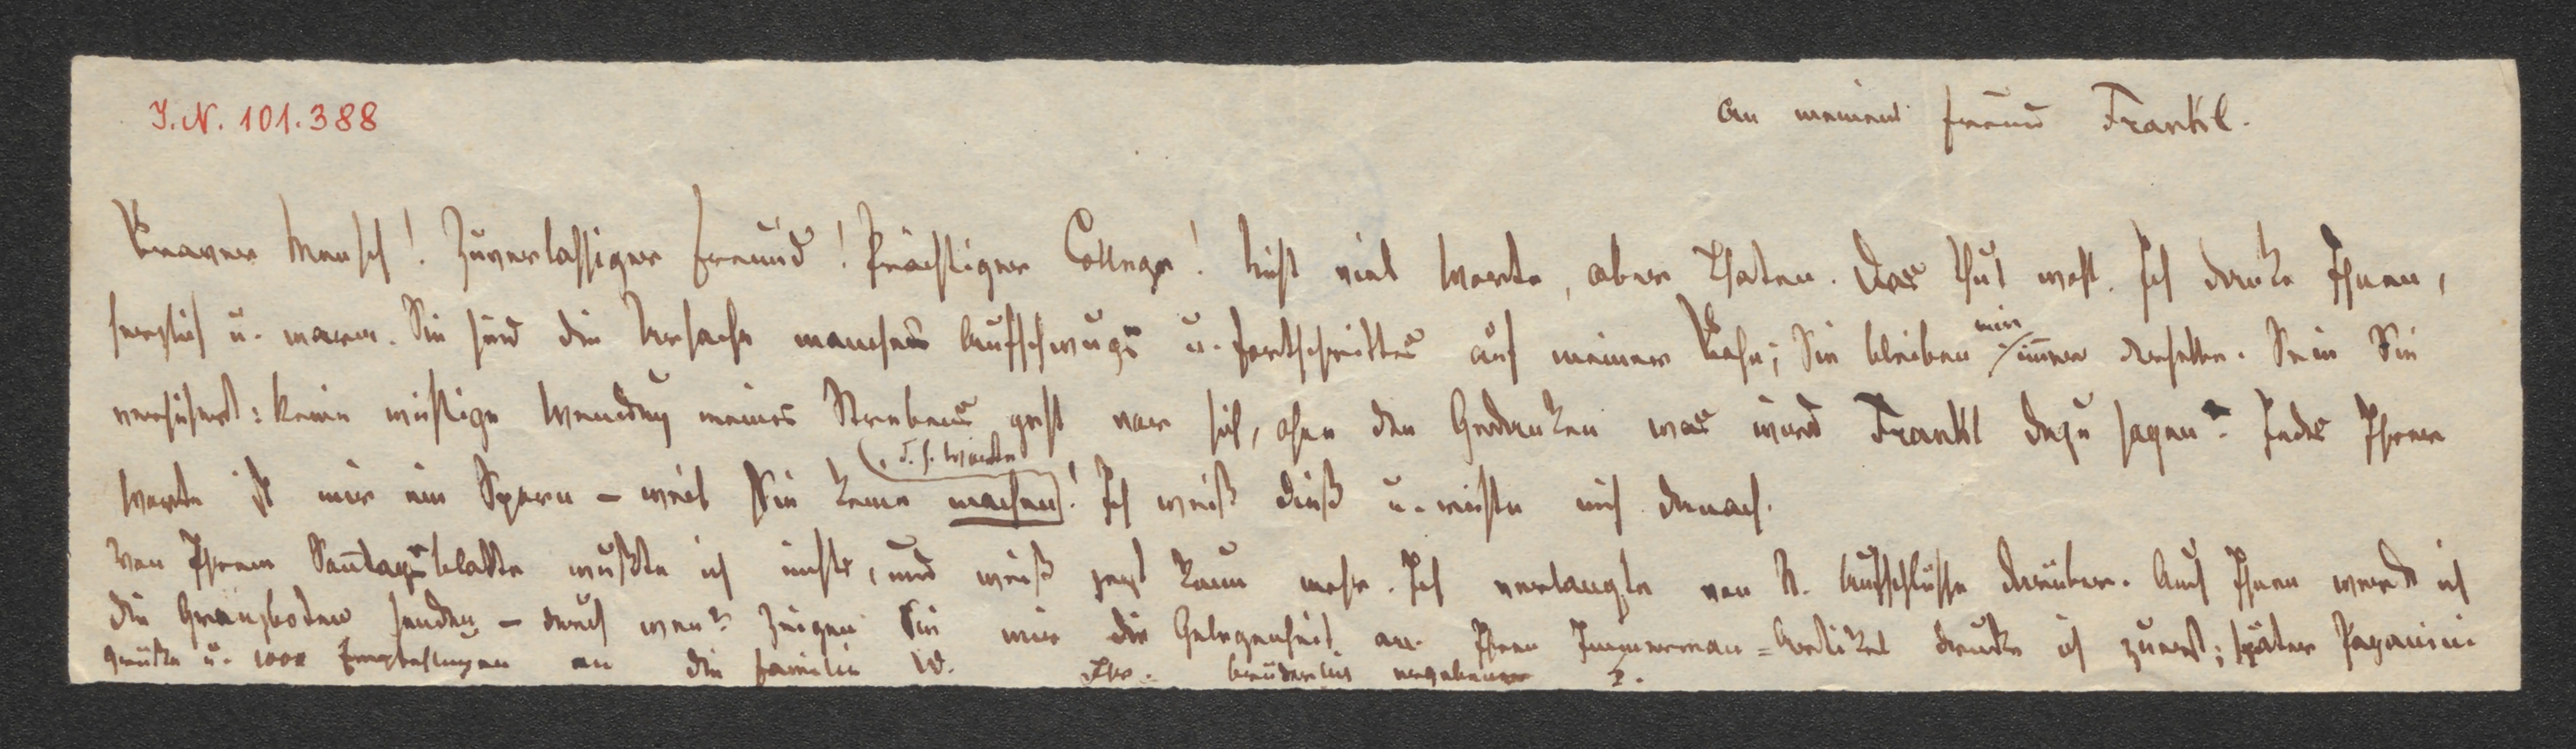 I. N. 101.388
An meinen Freund Frankl.
Braver Mensch! Zuverlässiger Freund! Prächtiger College! Nicht viel Worte, aber Thaten. Das thut wohl. Ich danke Ihnen,
herzlich u. warm. Sie sind die Ursache manches Aufschwungs u. Fortschrittes auf meiner Bahn; Sie bleiben mir immer derselbe. Sein Sie
versichert: keine wichtige Wendung meines Strebens geht vor sich, ohne den Gedanken was wird Frankl dazu sagen? Jedes Ihrer
Worte ist mir ein Sporn – weil Sie keine machen! Ich weiß dieß u. richte mich danach.
(d. h. Worte
Von Ihrem Sonntagsblatte wußte ich nichts, und weiß jetzt kaum mehr. Ich verlangte von N. Aufschlüsse darüber. Auch Ihnen werde ich
die Grenzboten senden – durch wen? Zeigen Sie mir die Gelegenheit an. Ihren Immerman=Artikel drucke ich zuerst; später Paganini.
Grüße u. 1000 Empfehlungen an die Familie W. Ihr brüderlich ergebener